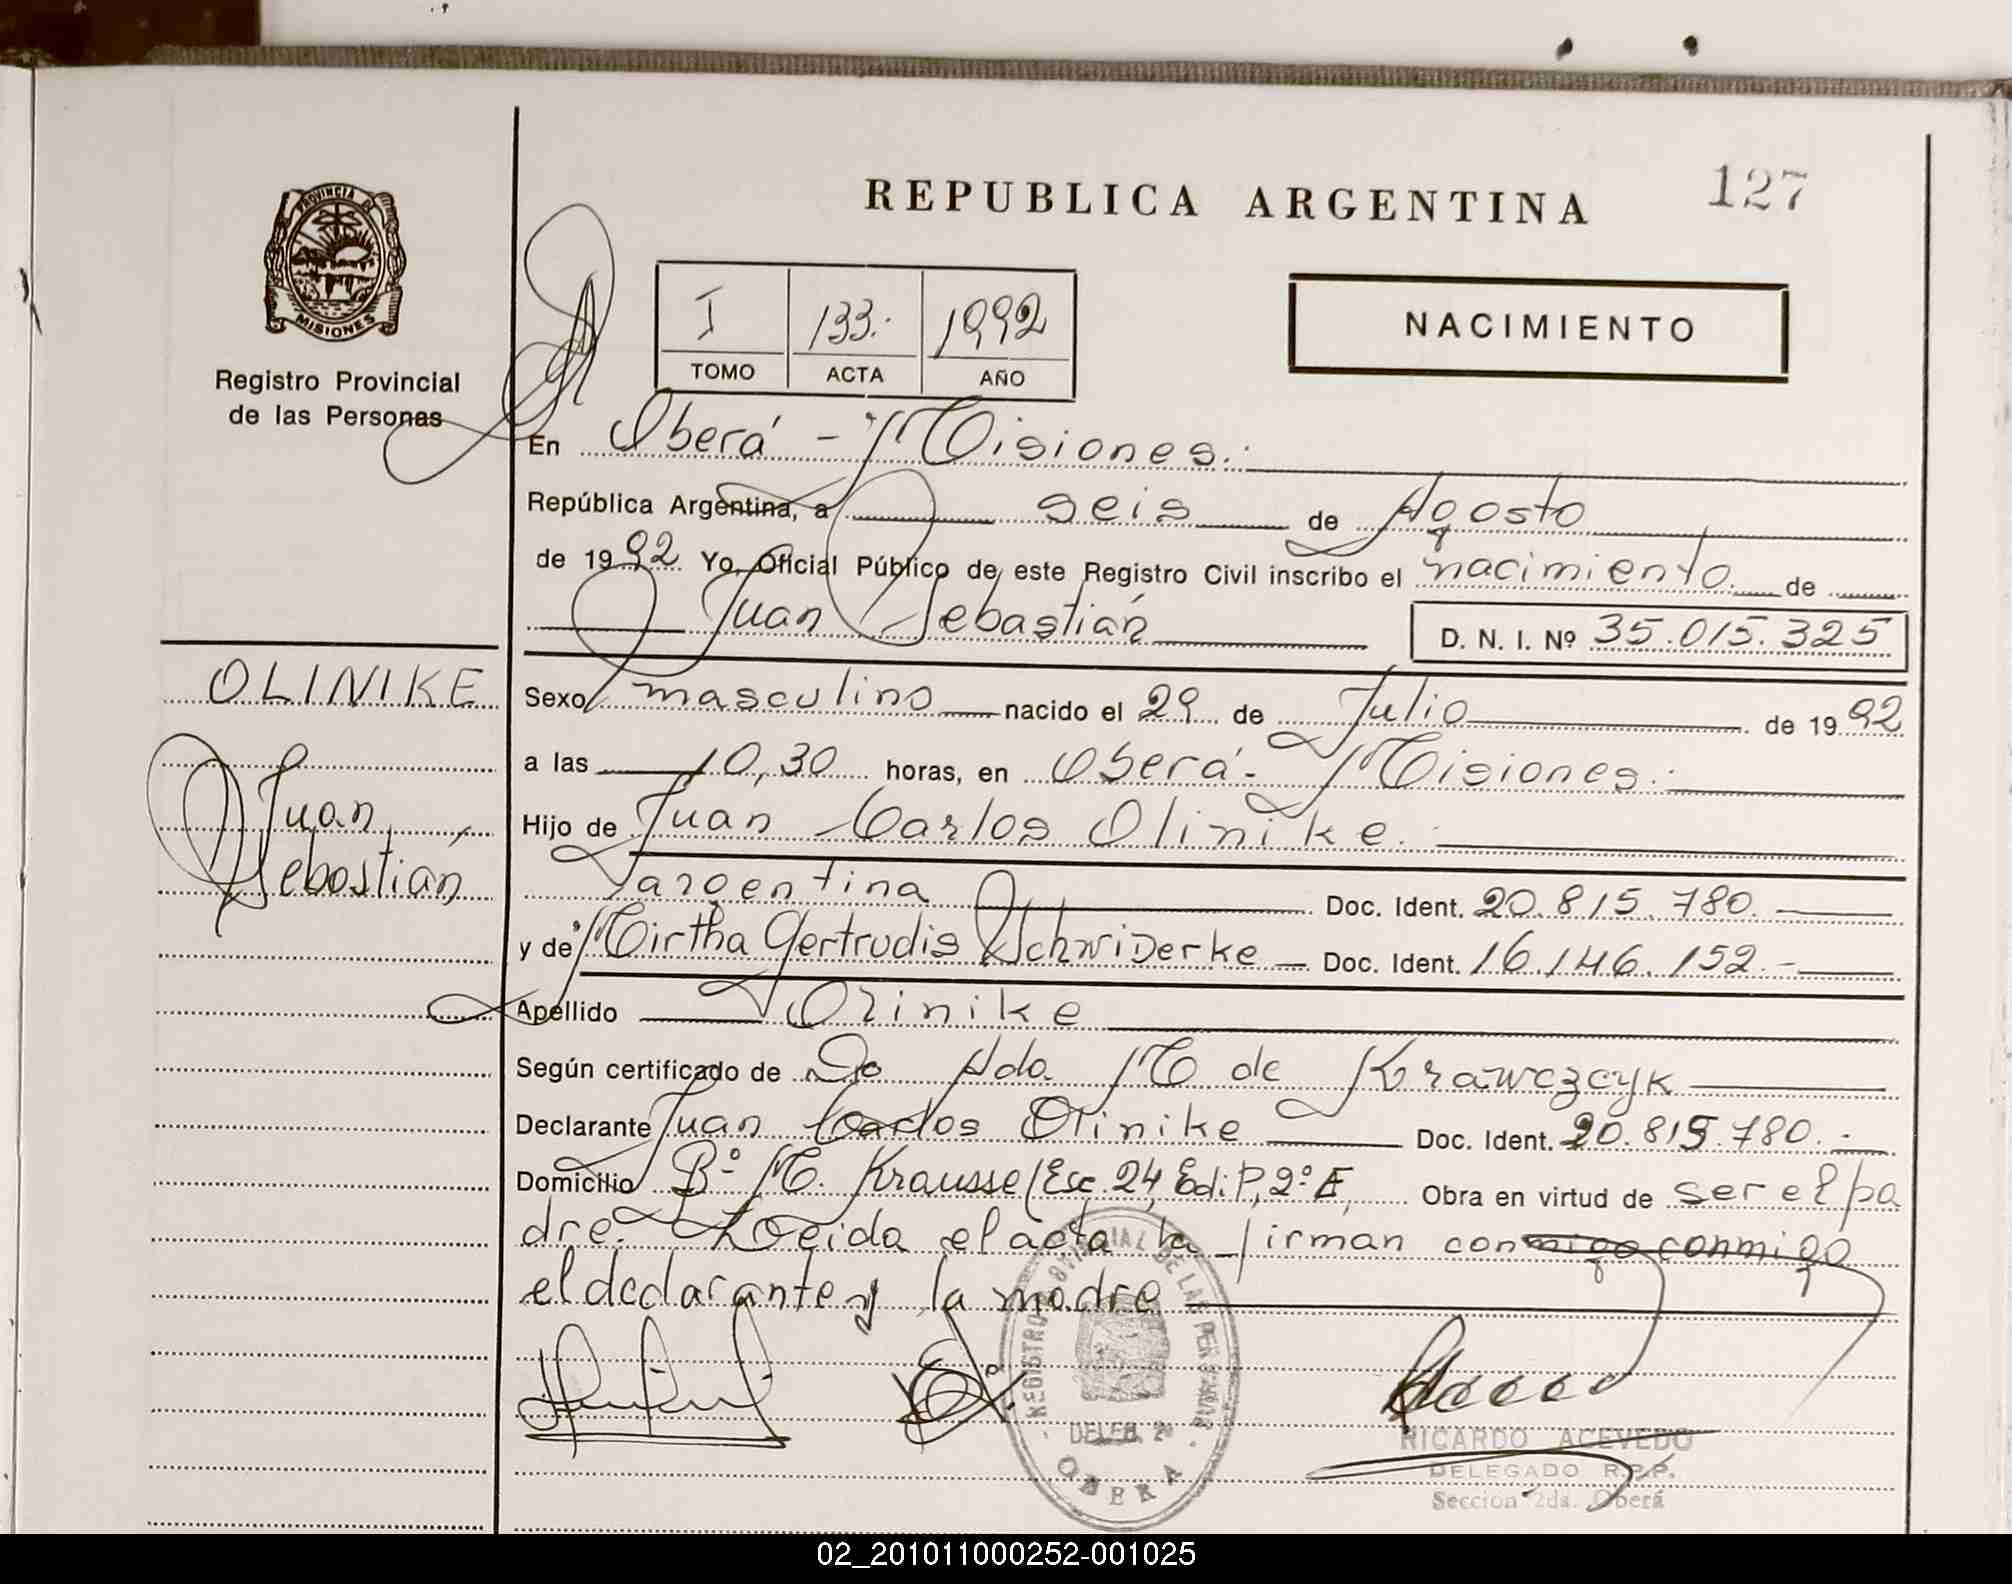 REPUBLICA ARGENTINA
127
PROVINCIA DE
MISIONES
Registro Provincial
de las Personas
I 133.- 1992
TOMO ACTA AÑO
NACIMIENTO
En Oberá - Misiones.-
República Argentina, a seis de Agosto
de 1992 Yo, Oficial Público de este Registro Civil inscribo el nacimiento de
Juan Sebastián
D. N. I. Nº 35.015.325
OLINIKE
Juan
Sebastián
Sexo masculino nacido el 29 de Julio de 1992
a las 10,30 horas, en Oberá- Misiones.-
Hijo de Juan Carlos Olinike.-
argentina Doc. Ident. 20.815.780.-
y de Mirtha Gertrudis Schwiderke Doc. Ident. 16.146.152.-
Apellido Olinike
Según certificado de Da Ada M de Krawczcyk
Declarante Juan Carlos Olinike Doc. Ident. 20.815.780.-
Domicilio Bº M. Krausse/Esc. 24, Edi. P, 2º E, Obra en virtud de ser el pa
dre. Leida el acta la firman conmigo conmigo
el declarante y la madre
REGISTRO PROVINCIAL DE LAS PERSONAS
DELEG. 2ª
OBERA
RICARDO ACEVEDO
DELEGADO R.P.P.
Seccion 2da. Oberá
02_201011000252-001025